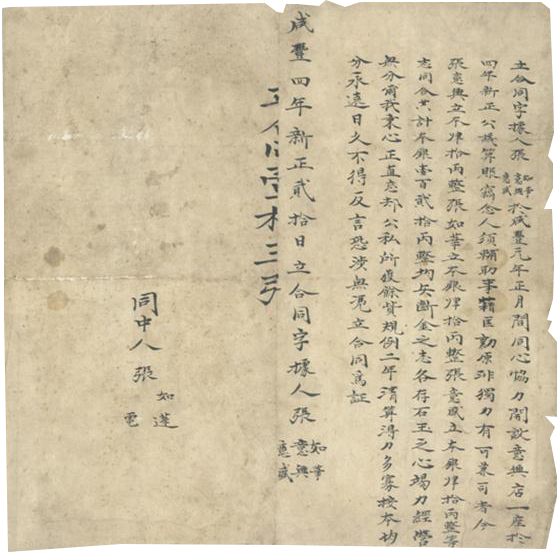 立合同字據人張如華意興意盛於咸豐元年正月間同心協力開設意興店一座於
四年新正公議算賬竊念人須賴助事藉匡勷原非獨力有可兼司者今
張意興立本肆拾两整張如華立本銀肆拾两整張意盛立本銀肆拾两整等
志同合共計本銀壹百貳拾两整均矢斷金之志各存石玉之心竭力經營
無分爾我秉心正直忘却公私所獲餘貲規例二年清算得力多寡按本均
分永遠日久不得反言恐涉無凴立合同為証
咸豐四年新正貳拾日立合同字據人張如華意興意盛
同中人張如蓬電